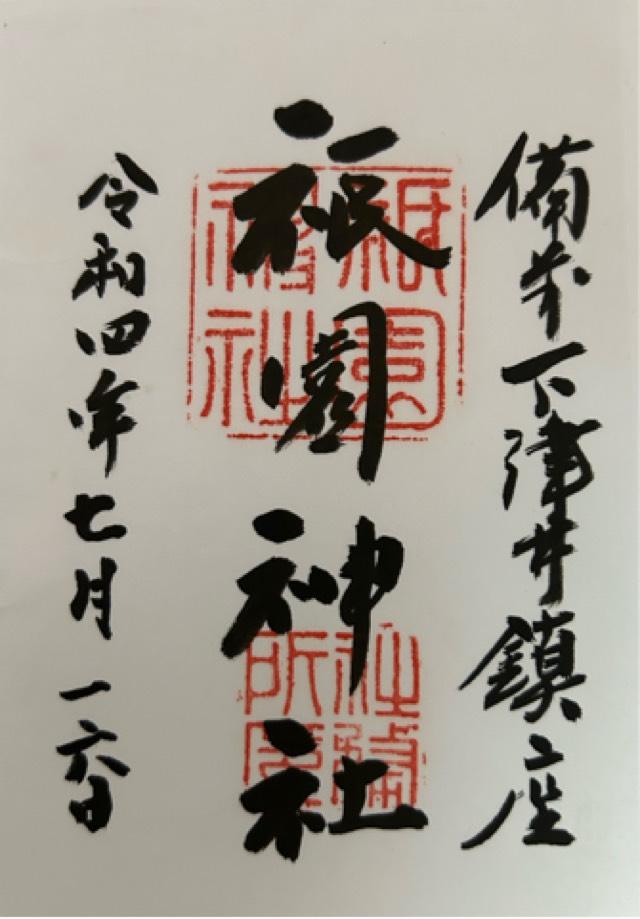 備前下津井鎮座
祇園神社
令和四年七月一六日
祇園
神社